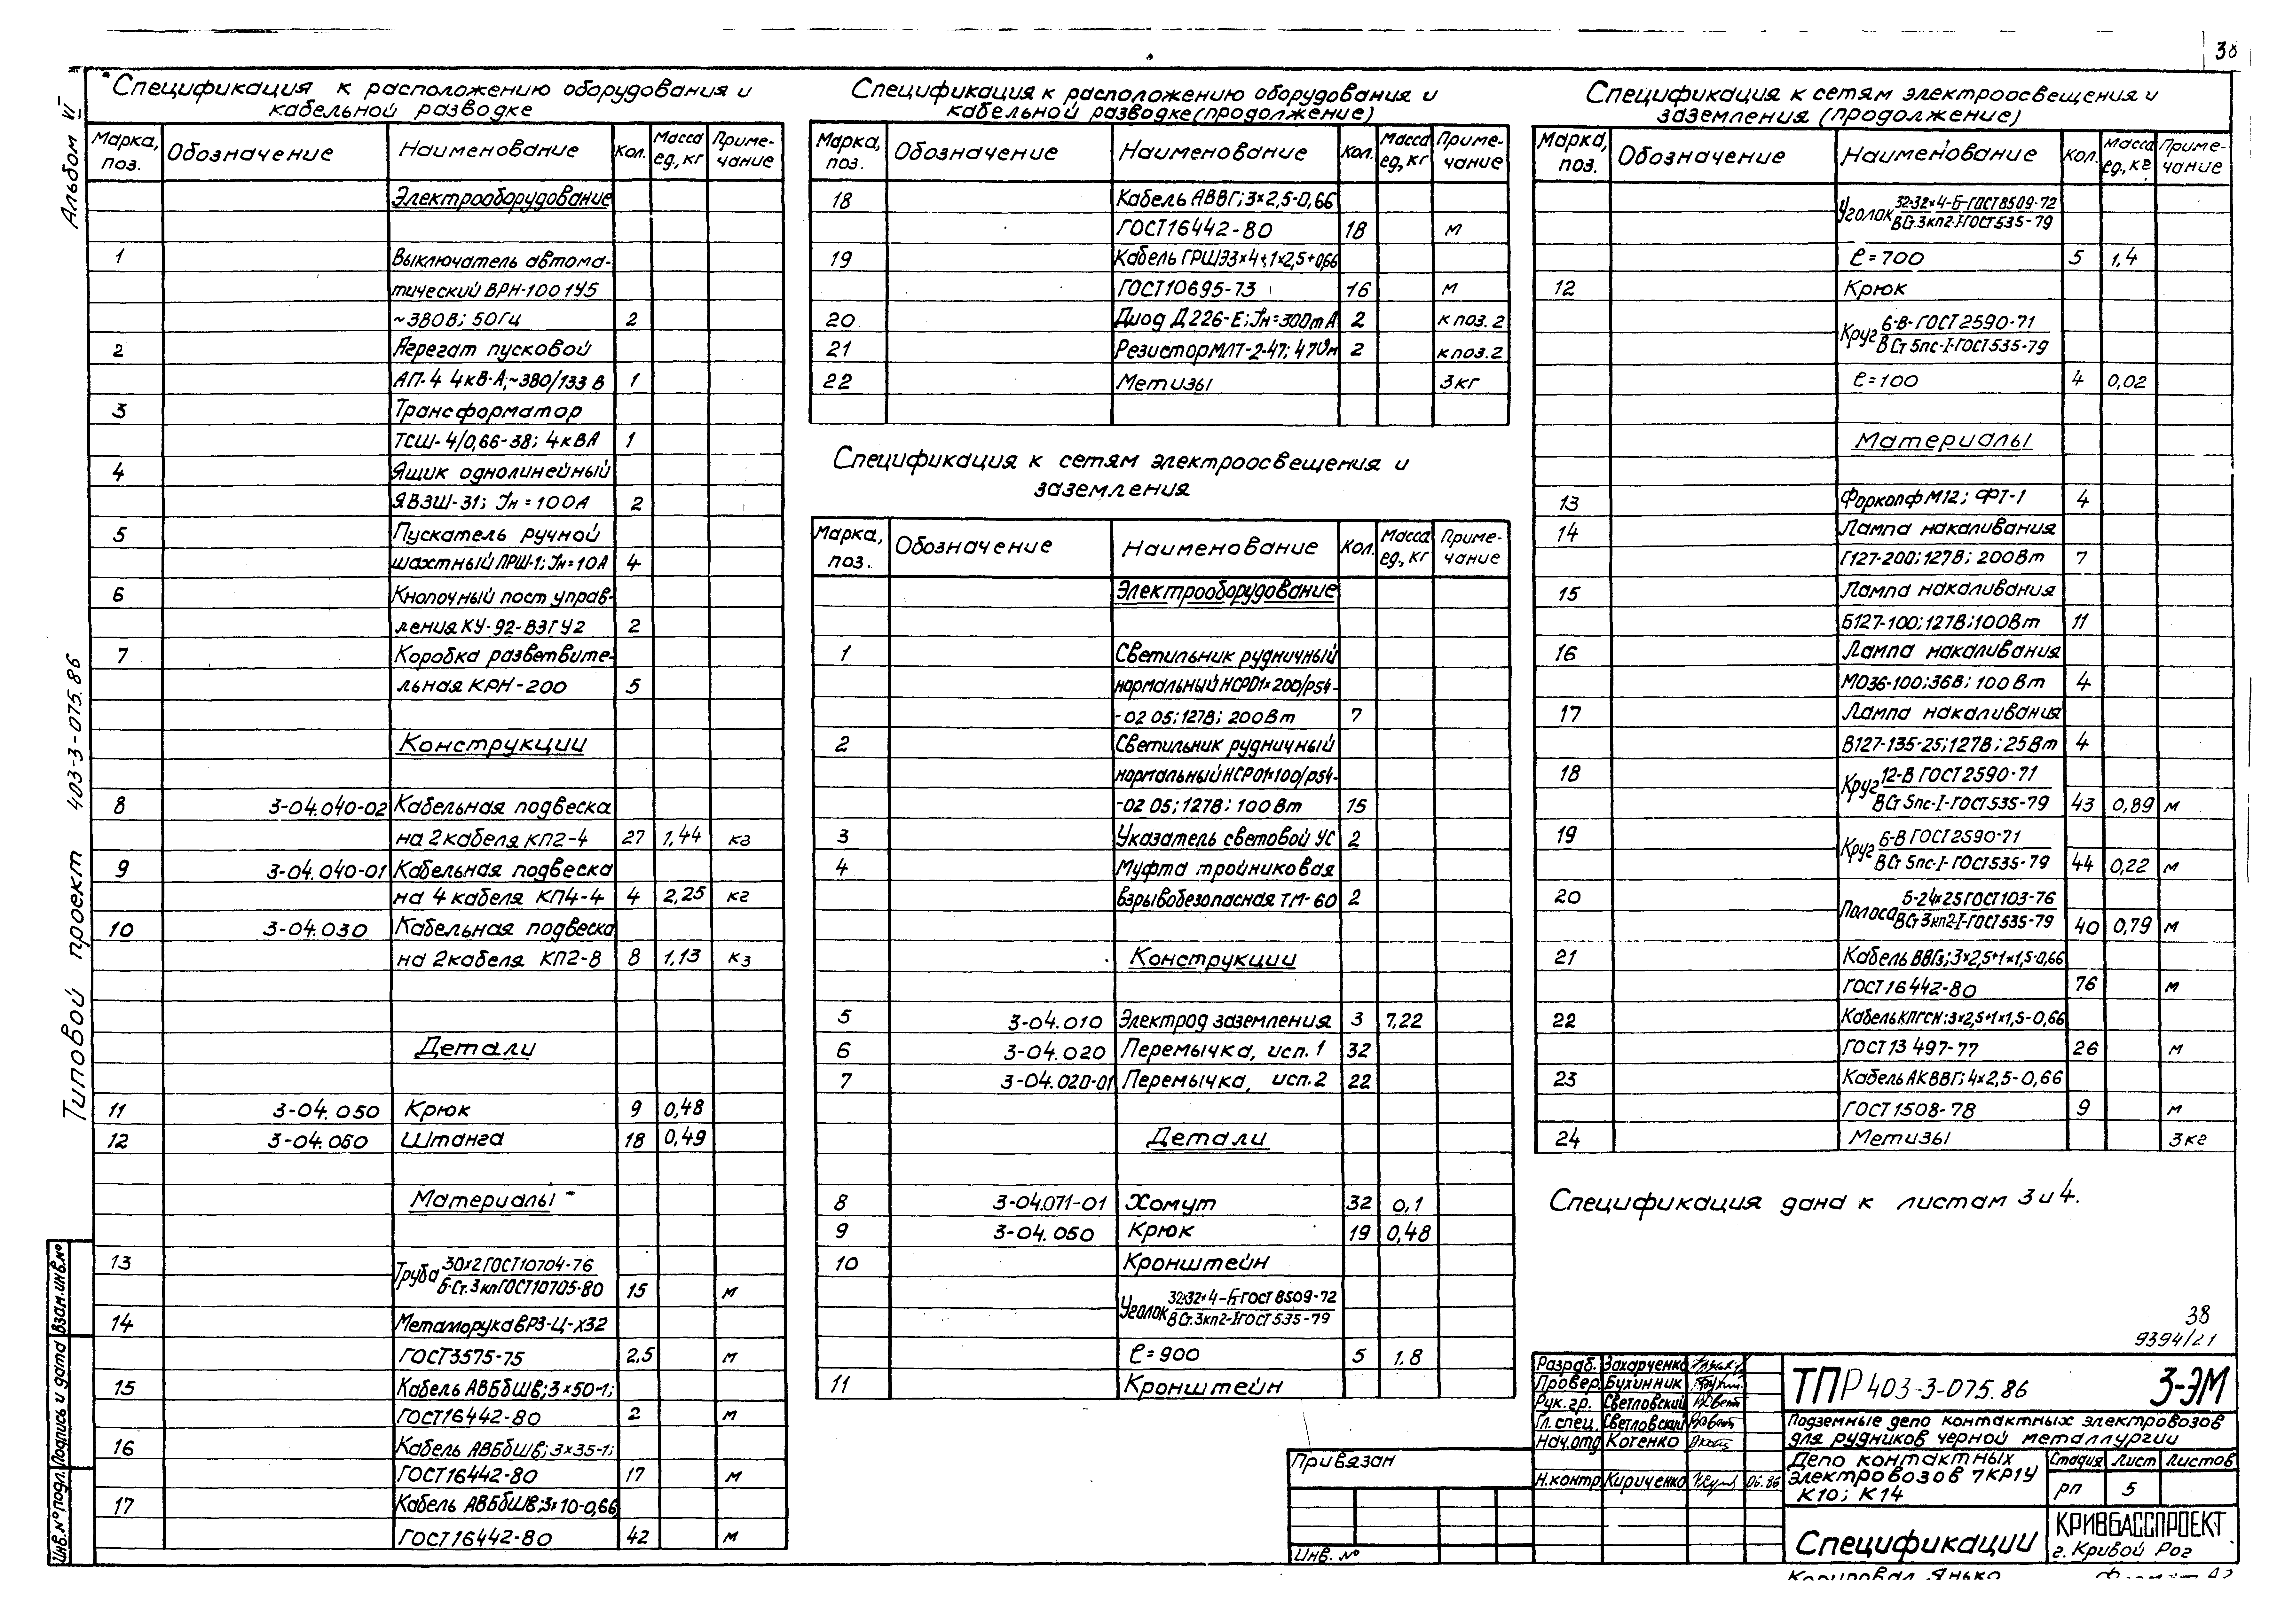 38
Альбом VI
Типовой проект 403-3-075.86
Спецификация к расположению оборудования и
кабельной разводке
Марка, поз. Обозначение Наименование Кол. Масса ед., кг Приме-чание
Электрооборудование
1 Выключатель автома-
тический ВРН-100 1У5
~380В; 50Гц 2
2 Агрегат пусковой
АП-4 4кВ·А;~380/133 В 1
3 Трансформатор
ТСШ-4/0,66-38; 4кВА 1
4 Ящик однолинейный
ЯВЗШ-31; Iн=100А 2
5 Пускатель ручной
шахтный ПРШ-1; Iн=10А 4
6 Кнопочный пост управ-
ления КУ-92-ВЗГУ2 2
7 Коробка разветвите-
льная КРН-200 5
Конструкции
8 3-04.040-02 Кабельная подвеска
на 2 кабеля КП2-4 27 1,44 кг
9 3-04.040-01 Кабельная подвеска
на 4 кабеля КП4-4 4 2,25 кг
10 3-04.030 Кабельная подвеска
на 2 кабеля КП2-8 8 1,13 кг
Детали
11 3-04.050 Крюк 9 0,48
12 3-04.060 Штанга 18 0,49
Материалы
13 Труба 30×2 ГОСТ10704-76
Б-Ст.3кп ГОСТ10705-80 15 м
14 Металлорукав РЗ-Ц-Х32
ГОСТ3575-75 2,5 м
15 Кабель АВБбШв;3×50-1;
ГОСТ16442-80 2 м
16 Кабель АВБбШв;3×35-1;
ГОСТ16442-80 17 м
17 Кабель АВБбШв;3×10-0,66
ГОСТ16442-80 42 м
Спецификация к расположению оборудования и
кабельной разводке (продолжение)
Марка, поз. Обозначение Наименование Кол. Масса ед., кг Приме-чание
18 Кабель АВВГ;3×2,5-0,66
ГОСТ16442-80 18 м
19 Кабель ГРШЭ3×4+1×2,5+0,66
ГОСТ10695-73 16 м
20 Диод Д226-Е; Iн=300mA 2 к поз.2
21 Резистор МЛТ-2-47; 47Ом 2 к поз.2
22 Метизы 3кг
Спецификация к сетям электроосвещения и
заземления
Марка, поз. Обозначение Наименование Кол. Масса ед., кг Приме-чание
Электрооборудование
1 Светильник рудничный
нормальный НСР01×200/Р54-
-02 05;127В; 200Вт 7
2 Светильник рудничный
нормальный НСР01×100/Р54-
-02 05;127В; 100Вт 15
3 Указатель световой УС 2
4 Муфта тройниковая
взрывобезопасная ТМ-60 2
Конструкции
5 3-04.010 Электрод заземления 3 7,22
6 3-04.020 Перемычка, исп.1 32
7 3-04.020-01 Перемычка, исп.2 22
Детали
8 3-04.071-01 Хомут 32 0,1
9 3-04.050 Крюк 19 0,48
10 Кронштейн
Уголок 32×32×4-Б-ГОСТ8509-72
ВСт.3кп2-I-ГОСТ535-79
ℓ=900 5 1,8
11 Кронштейн
Спецификация к сетям электроосвещения и
заземления (продолжение)
Марка, поз. Обозначение Наименование Кол. Масса ед., кг Приме-чание
Уголок 32×32×4-Б-ГОСТ8509-72
ВСт.3кп2-I-ГОСТ535-79
ℓ=700 5 1,4
12 Крюк
Круг 6-В-ГОСТ2590-71
ВСт5пс-I-ГОСТ535-79
ℓ=100 4 0,02
Материалы
13 Форкопф М12; ФТ-1 4
14 Лампа накаливания
Г127-200;127В; 200Вт 7
15 Лампа накаливания
Б127-100;127В;100Вт 11
16 Лампа накаливания
МО36-100;36В; 100Вт 4
17 Лампа накаливания
В127-135-25;127В; 25Вт 4
18 Круг 12-В ГОСТ2590-71
ВСт5пс-I-ГОСТ535-79 43 0,89 м
19 Круг 6-В ГОСТ2590-71
ВСт5пс-I-ГОСТ535-79 44 0,22 м
20 Полоса Б-24×25 ГОСТ103-76
ВСт3кп2-I-ГОСТ535-79 40 0,79 м
21 Кабель ВВГз;3×2,5+1×1,5-0,66
ГОСТ16442-80 76 м
22 Кабель КПГСН;3×2,5+1×1,5-0,66
ГОСТ13497-77 26 м
23 Кабель АКВВГ;4×2,5-0,66
ГОСТ1508-78 9 м
24 Метизы 3кг
Спецификация дана к листам 3 и 4.
38
9394/21
Разраб. Захарченко
Провер. Бухинник
Рук.гр. Светловский
Гл.спец. Светловский
Нач.отд Котенко
Н.контр. Кириченко 06.86
ТПР 403-3-075.86 3-ЭМ
Подземные депо контактных электровозов
для рудников черной металлургии
Депо контактных
электровозов 7КР1У
К10; К14
Стадия Лист Листов
РП 5
Спецификации
КРИВБАССПРОЕКТ
г. Кривой Рог
Привязан
Инв. №
Инв.№подл. Подпись и дата Взам.инв.№
Копировал Янько